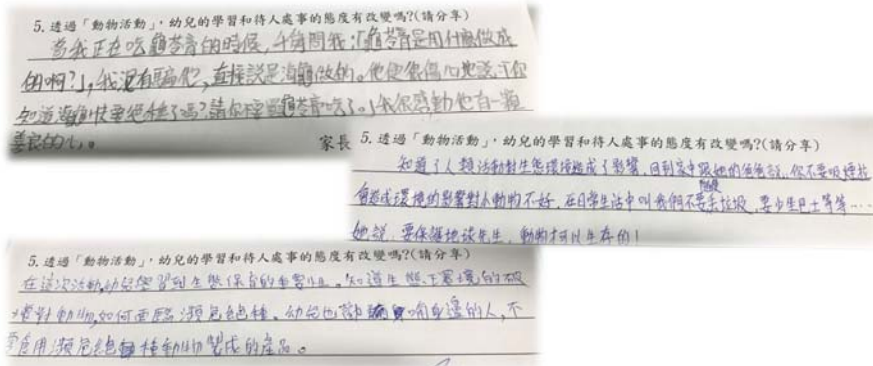 5. 透過「動物活動」，幼兒的學習和待人處事的態度有改變嗎?(請分享)
當我正在吃龜苓膏的時候，千舜問我：「龜苓膏是用什麼做成
的啊?」，我沒有騙他，直接說是海龜做的。他便很傷心地說：「你
知道海龜快要絕種了嗎?請你不要買龜苓膏吃了。」我很感動他有一顆
善良的心。
家長
5. 透過「動物活動」，幼兒的學習和待人處事的態度有改變嗎?(請分享)
知道了人類活動對生態環境造成了影響，回到家中跟她的爸爸說，你不要吸煙
會造成環境的影響對小動物不好，在日常生活中叫我們不要 垃圾，要少坐巴士等等……
她說，要保護地球先生，動物才可以生存的!
5. 透過「動物活動」，幼兒的學習和待人處事的態度有改變嗎?(請分享)
在這次活動，幼兒學習到生態保育的重要性。知道生態環境的破
壞對動物，如何面臨瀕危絕種。幼兒也 身邊的人，不
要食用瀕危絕種動物製成的產品。